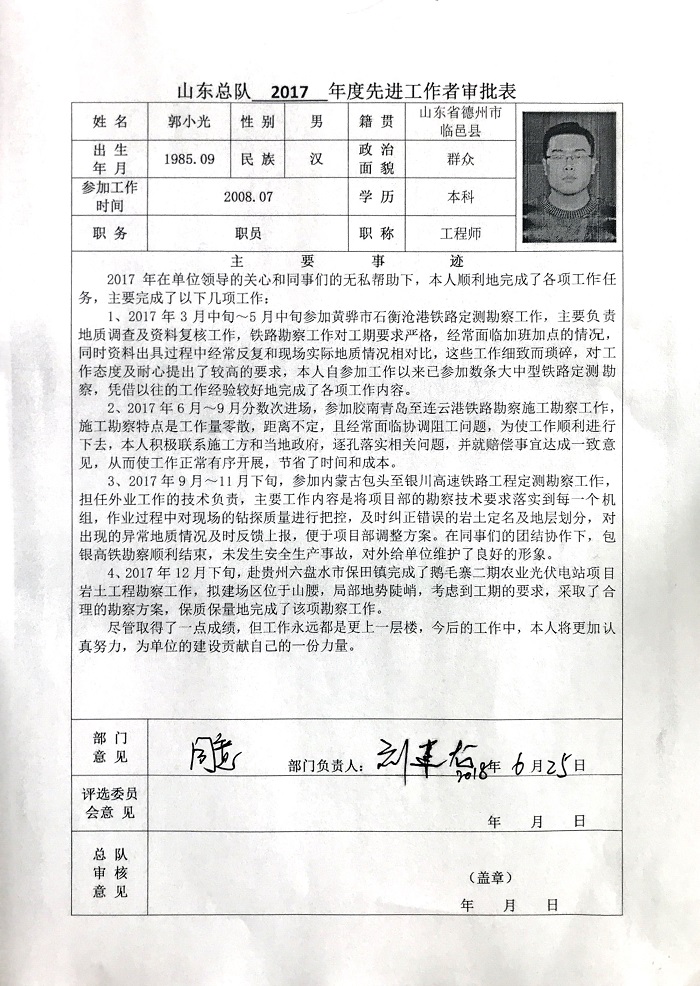 山东总队 2017 年度先进工作者审批表
姓 名 郭小光 性 别 男 籍 贯 山东省德州市临邑县
出 生年 月 1985.09 民 族 汉 政 治面 貌 群众
参加工作时间 2008.07 学 历 本科
职 务 职员 职 称 工程师
主 要 事 迹
2017 年在单位领导的关心和同事们的无私帮助下，本人顺利地完成了各项工作任
务，主要完成了以下几项工作：
1、2017 年 3 月中旬～5 月中旬参加黄骅市石衡沧港铁路定测勘察工作，主要负责
地质调查及资料复核工作，铁路勘察工作对工期要求严格，经常面临加班加点的情况，
同时资料出具过程中经常反复和现场实际地质情况相对比，这些工作细致而琐碎，对工
作态度及耐心提出了较高的要求，本人自参加工作以来已参加数条大中型铁路定测勘
察，凭借以往的工作经验较好地完成了各项工作内容。
2、2017 年 6 月～9 月分数次进场，参加胶南青岛至连云港铁路勘察施工勘察工作，
施工勘察特点是工作量零散，距离不定，且经常面临协调阻工问题，为使工作顺利进行
下去，本人积极联系施工方和当地政府，逐孔落实相关问题，并就赔偿事宜达成一致意
见，从而使工作正常有序开展，节省了时间和成本。
3、2017 年 9 月～11 月下旬，参加内蒙古包头至银川高速铁路工程定测勘察工作，
担任外业工作的技术负责，主要工作内容是将项目部的勘察技术要求落实到每一个机
组，作业过程中对现场的钻探质量进行把控，及时纠正错误的岩土定名及地层划分，对
出现的异常地质情况及时反馈上报，便于项目部调整方案。在同事们的团结协作下，包
银高铁勘察顺利结束，未发生安全生产事故，对外给单位维护了良好的形象。
4、2017 年 12 月下旬，赴贵州六盘水市保田镇完成了鹅毛寨二期农业光伏电站项目
岩土工程勘察工作，拟建场区位于山腰，局部地势陡峭，考虑到工期的要求，采取了合
理的勘察方案，保质保量地完成了该项勘察工作。
尽管取得了一点成绩，但工作永远都是更上一层楼，今后的工作中，本人将更加认
真努力，为单位的建设贡献自己的一份力量。
部 门
意 见
同意 部门负责人： 刘建 2018 年 6 月 25 日
评选委员
会意 见
年 月 日
总 队
审 核
意 见
（盖章）
年 月 日